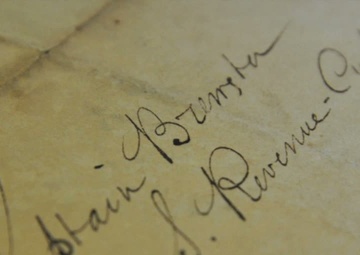 ptain Brewster
S. Revenue-C